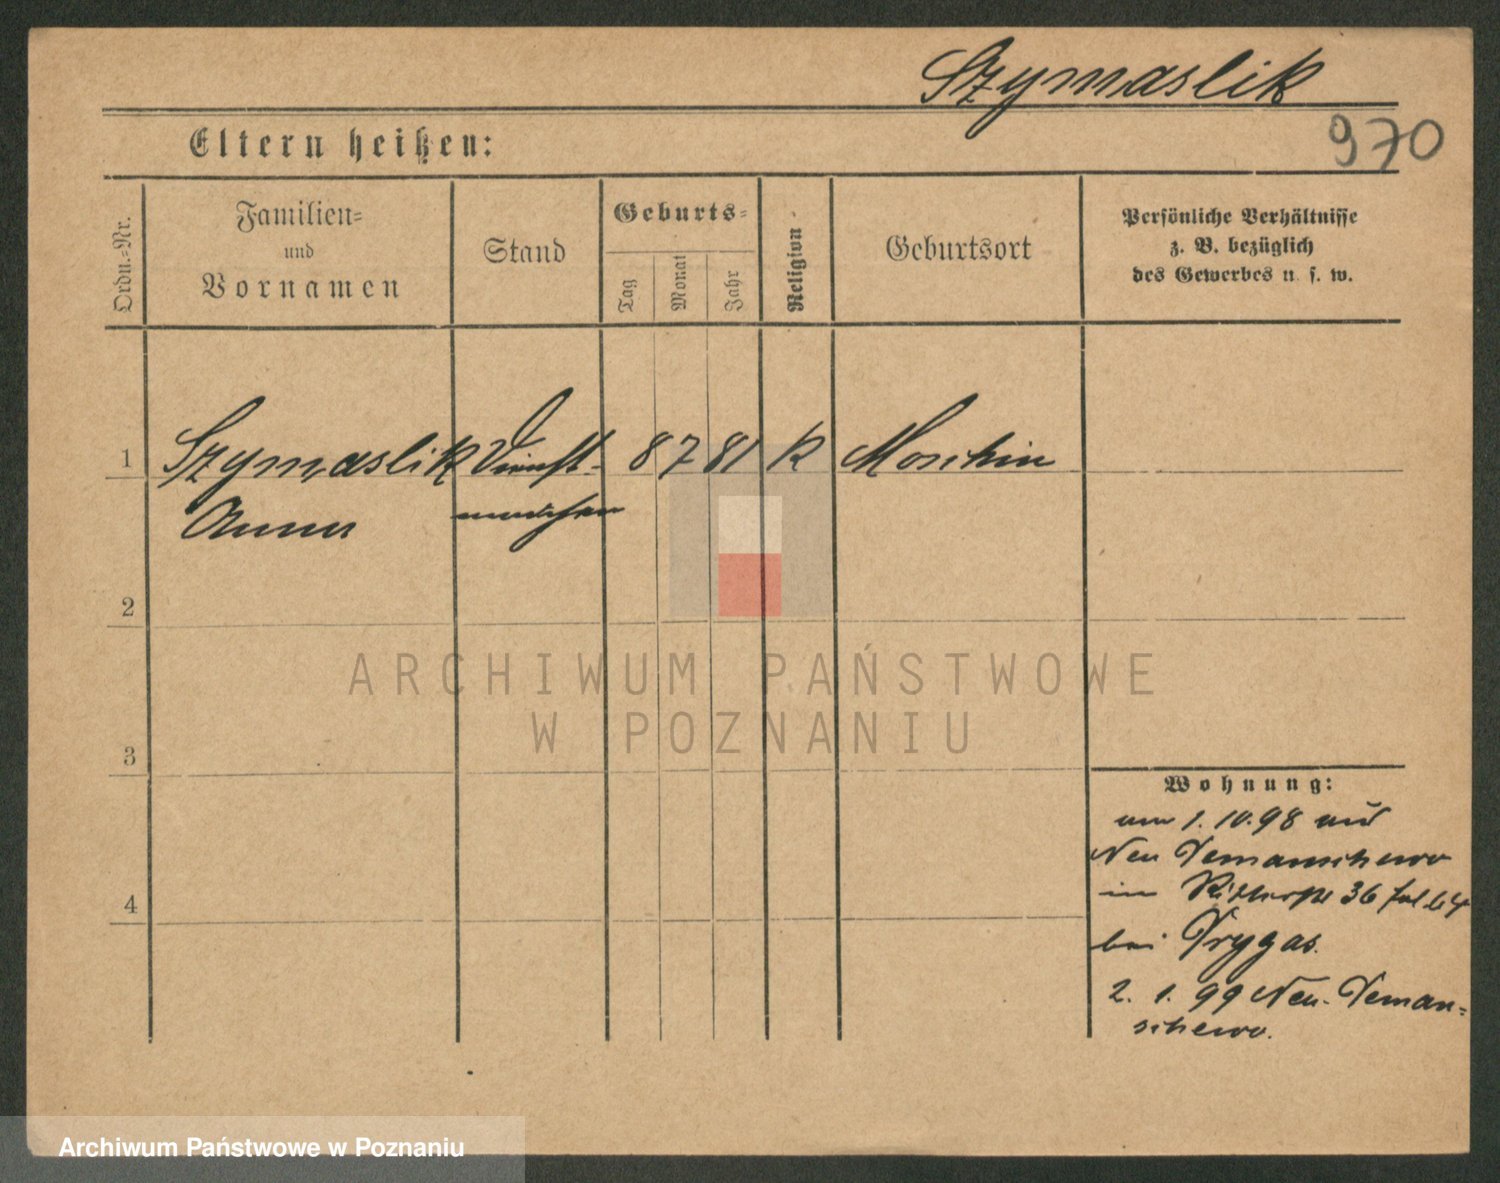 Szymaslik
970
Eltern heißen:
Ordn.-Nr.
Familien-
und
Vornamen
Stand
Geburts-
Tag
Monat
Jahr
Religion
Geburtsort
Persönliche Verhältnisse
z. B. bezüglich
des Gewerbes u. s. w.
1 Szymaslik Dienst- 8 7 81 K Moschin
Anna mädchen
2
3
4
Wohnung:
am 1.10.98 aus
Neu Demanschewo
in Ritterstr 36
bei Frygas.
2. 1. 99 Neu-Deman-
schewo.
ARCHIWUM PAŃSTWOWE
W POZNANIU
Archiwum Państwowe w Poznaniu